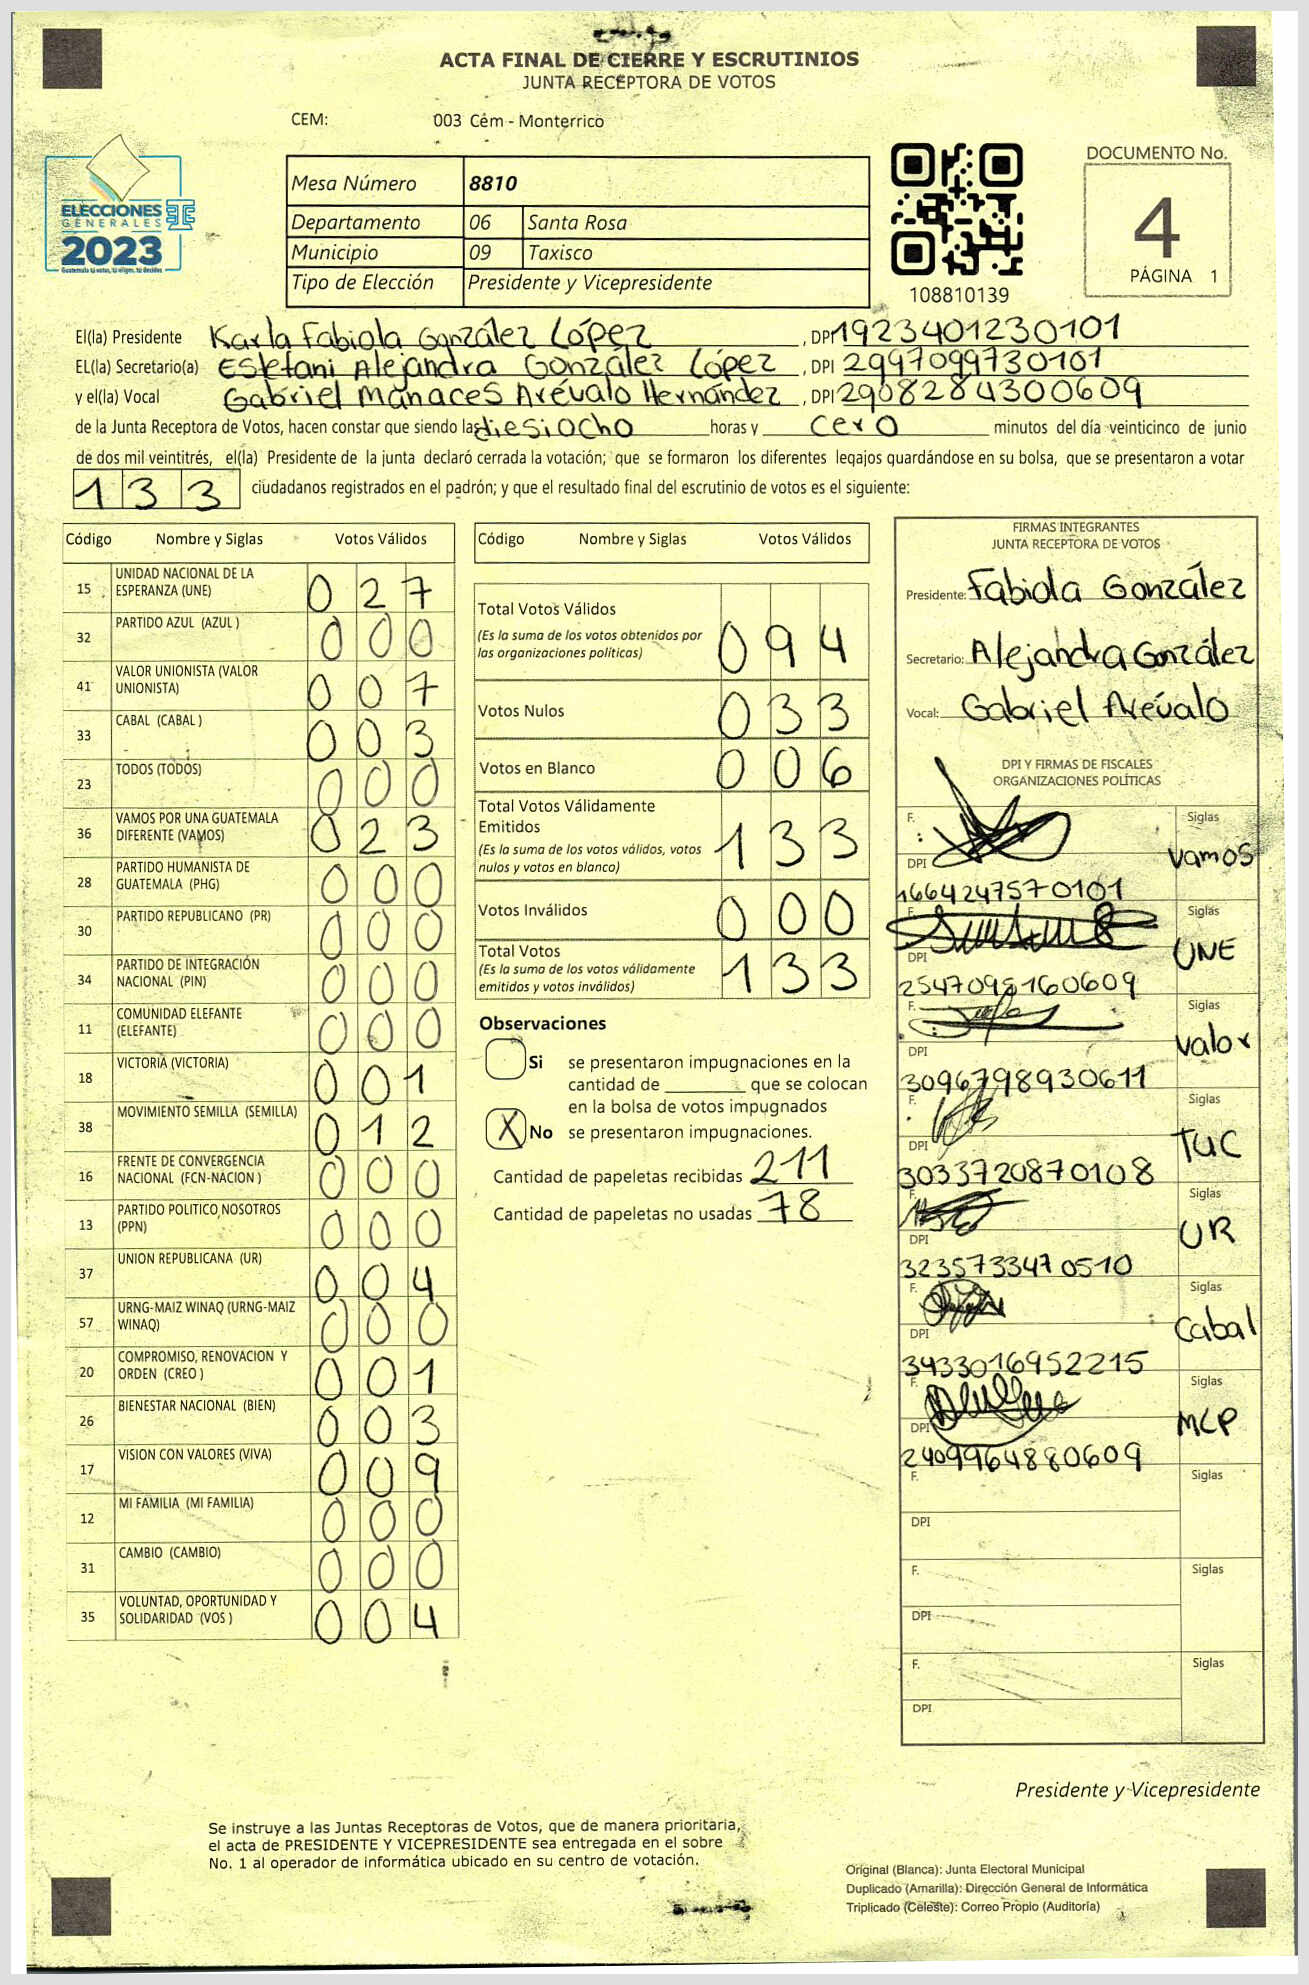 ACTA FINAL DE CIERRE Y ESCRUTINIOS
JUNTA RECEPTORA DE VOTOS
CEM: 003 Cem - Monterrico
ELECCIONES
GENERALES
2023
Guatemala tú votas, tú eliges, tú decides
Mesa Número 8810
Departamento 06 Santa Rosa
Municipio 09 Taxisco
Tipo de Elección Presidente y Vicepresidente
108810139
DOCUMENTO No.
4
PÁGINA 1
El(la) Presidente Karla Fabiola González López, DPI 1923401230101
EL(la) Secretario(a) Estefani Alejandra González López, DPI 2997099730101
y el(la) Vocal Gabriel Manaces Arévalo Hernández, DPI 2908284300609
de la Junta Receptora de Votos, hacen constar que siendo las diesiocho horas y cero minutos del día veinticinco de junio
de dos mil veintitrés, el(la) Presidente de la junta declaró cerrada la votación; que se formaron los diferentes legajos guardándose en su bolsa, que se presentaron a votar
133 ciudadanos registrados en el padrón; y que el resultado final del escrutinio de votos es el siguiente:
Código Nombre y Siglas Votos Válidos
15 UNIDAD NACIONAL DE LA ESPERANZA (UNE) 027
32 PARTIDO AZUL (AZUL ) 000
41 VALOR UNIONISTA (VALOR UNIONISTA) 007
33 CABAL (CABAL ) 003
23 TODOS (TODOS) 000
36 VAMOS POR UNA GUATEMALA DIFERENTE (VAMOS) 023
28 PARTIDO HUMANISTA DE GUATEMALA (PHG) 000
30 PARTIDO REPUBLICANO (PR) 000
34 PARTIDO DE INTEGRACIÓN NACIONAL (PIN) 000
11 COMUNIDAD ELEFANTE (ELEFANTE) 000
18 VICTORIA (VICTORIA) 001
38 MOVIMIENTO SEMILLA (SEMILLA) 012
16 FRENTE DE CONVERGENCIA NACIONAL (FCN-NACION ) 000
13 PARTIDO POLITICO NOSOTROS (PPN) 000
37 UNION REPUBLICANA (UR) 004
57 URNG-MAIZ WINAQ (URNG-MAIZ WINAQ) 000
20 COMPROMISO, RENOVACION Y ORDEN (CREO ) 001
26 BIENESTAR NACIONAL (BIEN) 003
17 VISION CON VALORES (VIVA) 009
12 MI FAMILIA (MI FAMILIA) 000
31 CAMBIO (CAMBIO) 000
35 VOLUNTAD, OPORTUNIDAD Y SOLIDARIDAD (VOS ) 004
Código Nombre y Siglas Votos Válidos
Total Votos Válidos
(Es la suma de los votos obtenidos por las organizaciones políticas) 094
Votos Nulos 033
Votos en Blanco 006
Total Votos Válidamente Emitidos
(Es la suma de los votos válidos, votos nulos y votos en blanco) 133
Votos Inválidos 000
Total Votos
(Es la suma de los votos válidamente emitidos y votos inválidos) 133
Observaciones
Si se presentaron impugnaciones en la
cantidad de ________ que se colocan
en la bolsa de votos impugnados
X No se presentaron impugnaciones.
Cantidad de papeletas recibidas 211
Cantidad de papeletas no usadas 78
FIRMAS INTEGRANTES
JUNTA RECEPTORA DE VOTOS
Presidente: Fabiola González
Secretario: Alejandra González
Vocal: Gabriel Arévalo
DPI Y FIRMAS DE FISCALES
ORGANIZACIONES POLÍTICAS
F. Siglas
DPI Vamos
1664247570101
F. Siglas
DPI UNE
2547098160609
F. Siglas
DPI Valor
3096798930611
F. Siglas
DPI TUC
3033720870108
F. Siglas
DPI UR
3235733470510
F. Siglas
DPI Cabal
3433016952215
F. Siglas
DPI MLP
2409964880609
F. Siglas
DPI
F. Siglas
DPI
F. Siglas
DPI
Presidente y Vicepresidente
Se instruye a las Juntas Receptoras de Votos, que de manera prioritaria,
el acta de PRESIDENTE Y VICEPRESIDENTE sea entregada en el sobre
No. 1 al operador de informática ubicado en su centro de votación.
Original (Blanca): Junta Electoral Municipal
Duplicado (Amarilla): Dirección General de Informática
Triplicado (Celeste): Correo Propio (Auditoría)